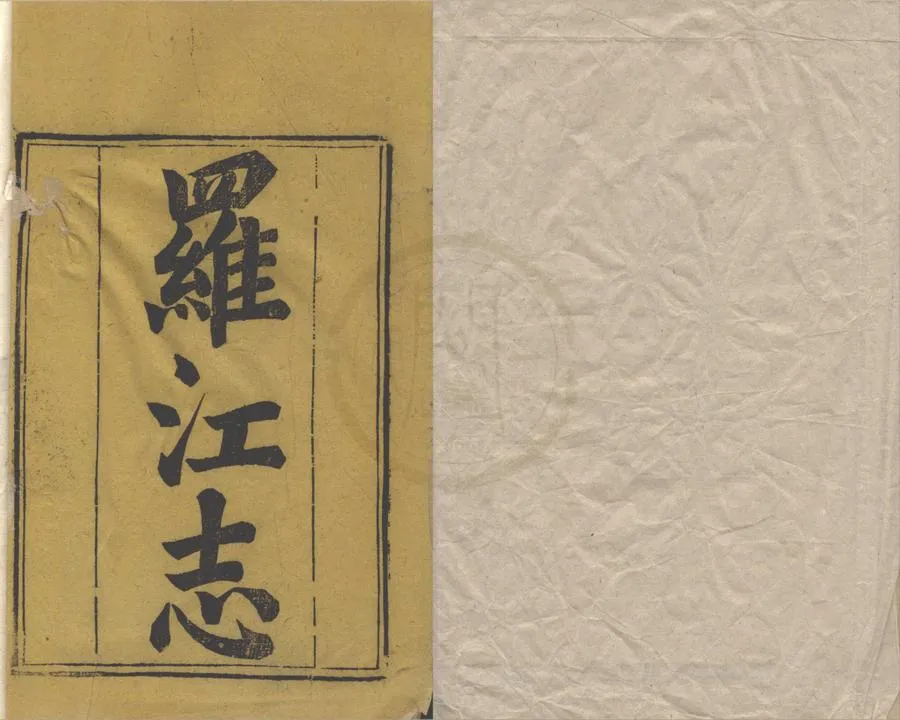 羅江志